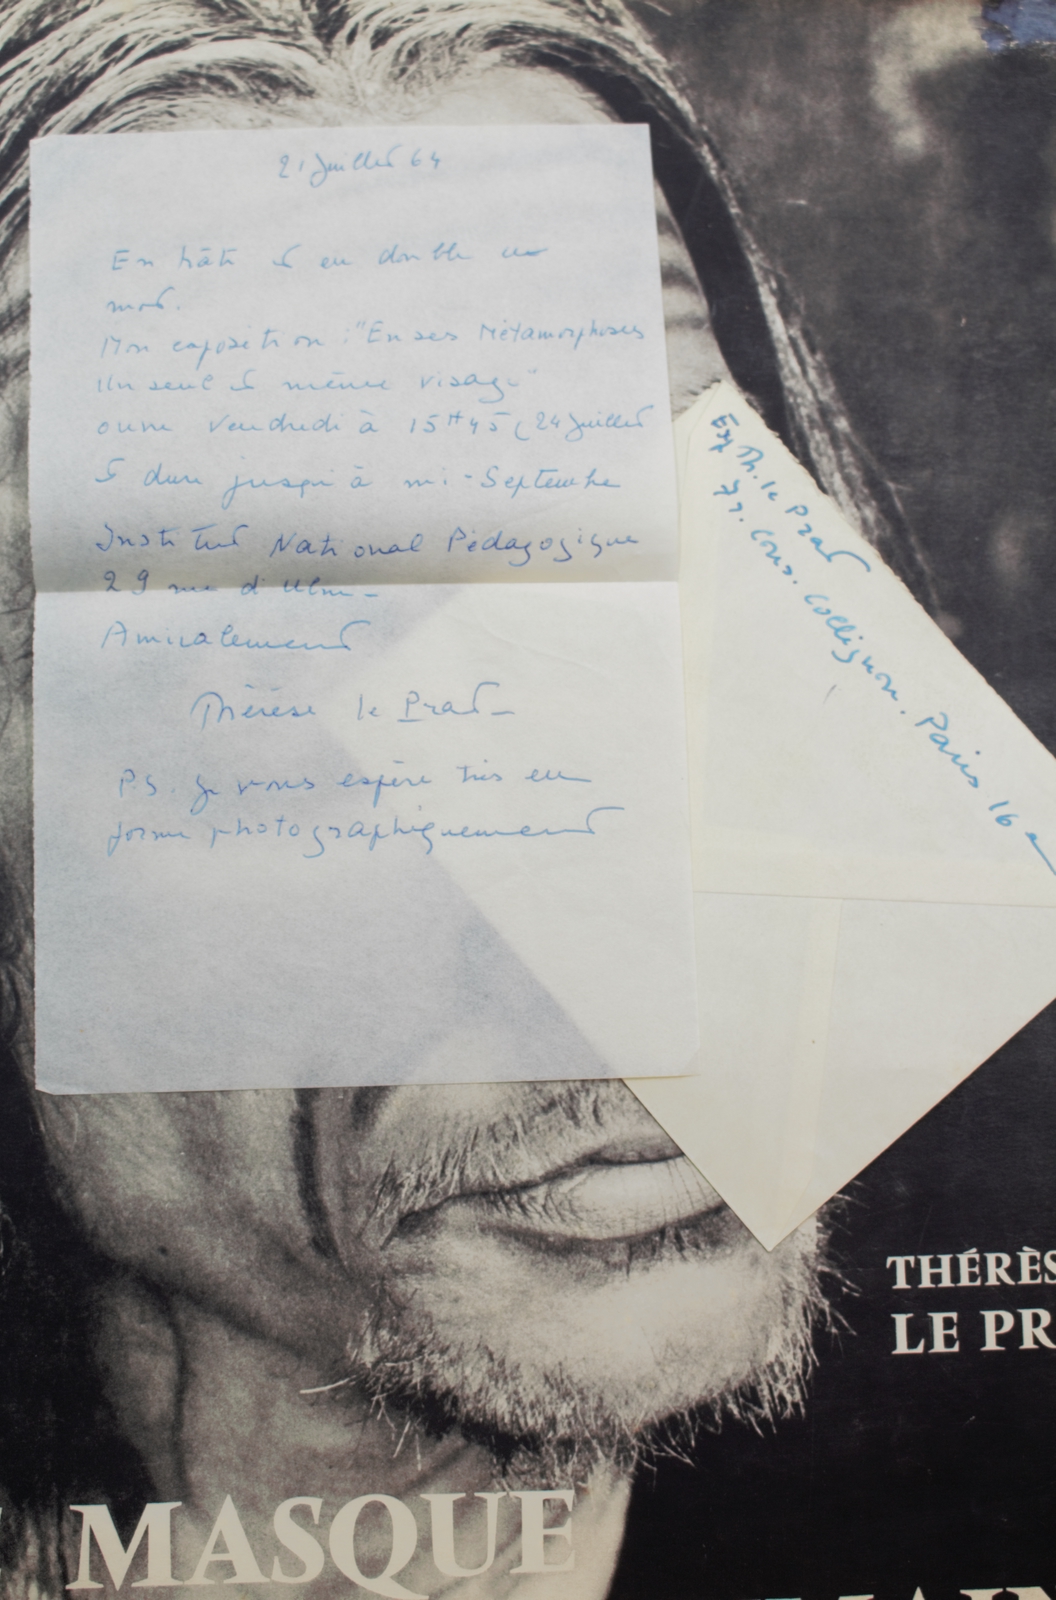 21 Juillet 64
En hâte et en double un
mot.
Mon exposition : "En ses Métamorphoses
Un seul et même visage"
ouvre Vendredi à 15H45 (24 Juillet
et dure jusqu'à mi-Septembre
Institut National Pédagogique
29 rue d'Ulm -
Amicalement
Thérèse le Prat -
PS. Je vous espère très en
forme photographiquement
Exp Th. le Prat
Collignon. Paris 16e
THÉRÈS
LE PR
MASQUE
MAIN